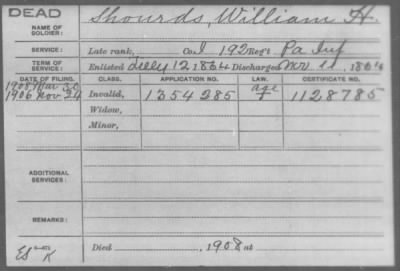 DEAD
NAME OF SOLDIER: Shourds, William H.
SERVICE: Late rank, Co. I 192 Regt. Pa Inf
TERM OF SERVICE: Enlisted July 12 1864 Discharged Nov 11, 1864
DATE OF FILING. CLASS. APPLICATION NO. LAW. CERTIFICATE NO.
1908 Mar
1906 Nov 24 Invalid, 1354285 age 1128785
Widow,
Minor,
ADDITIONAL SERVICES:
REMARKS:
Died , 1908 at